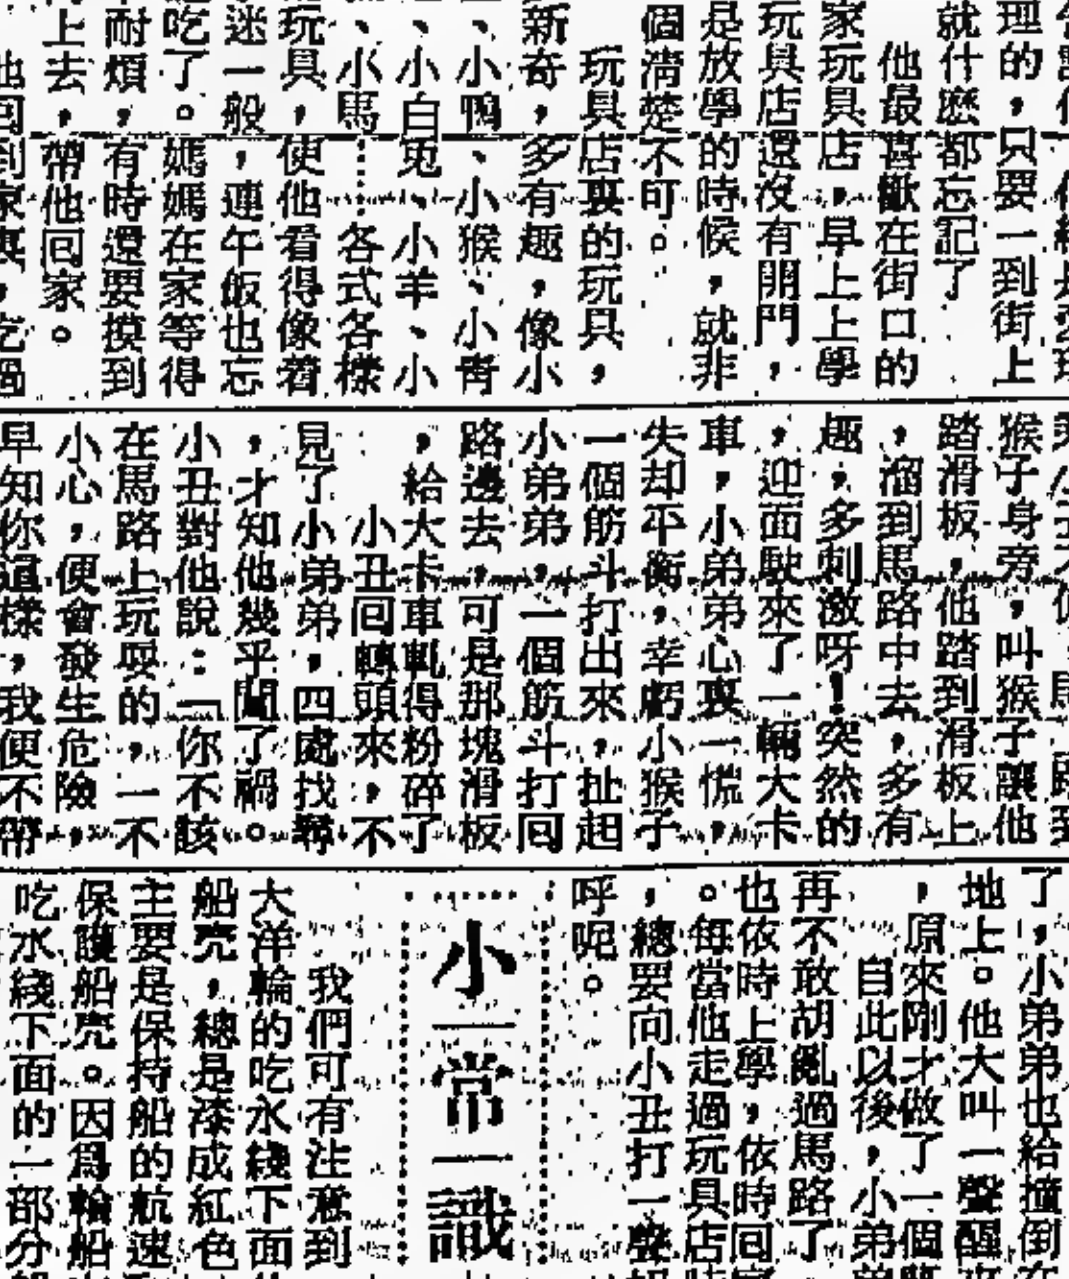 理的，只要一到街上
就什麽都忘記了
他最喜歡在街口的
家玩具店，早上上學
玩具店還沒有開門，
是放學的時候，就非
個淸楚不可。
玩具店裏的玩具，
新奇，多有趣，像小
、小鴨、小猴、小靑
、小白兎、小羊、小
、小馬……各式各樣
玩具，使他看得像着
迷一般，連午飯也忘
吃了。媽媽在家等得
耐煩，有時還要摸到
上去，帶他回家。
他回到家裏，吃過
猴子身旁，叫猴子讓他
踏滑板，他踏到滑板上
，溜到馬路中去，多有
趣，多刺激呀！突然的
，迎面駛來了一輛大卡
車，小弟弟心裏一慌，
失却平衡，幸虧小猴子
一個筋斗打出來，扯起
小弟弟，一個筋斗打回
路邊去，可是那塊滑板
，給大卡車軋得粉碎了
小丑回轉頭來，不
見了小弟弟，四處找尋
，才知他幾乎闖了禍。
小丑對他說：「你不該
在馬路上玩耍的，一不
小心，便會發生危險，
早知你這樣，我便不帶
了，小弟弟也給撞倒
地上。他大叫一聲醒
，原來剛才做了一個
自此以後，小弟
再不敢胡亂過馬路了
也依時上學，依時回
。每當他走過玩具店
，總要向小丑打一聲
呼呢。
小常識
我們可有注意到
大洋輪的吃水綫下面
船壳，總是漆成紅色
主要是保持船的航速
保護船壳。因爲輪船
吃水綫下面的一部分